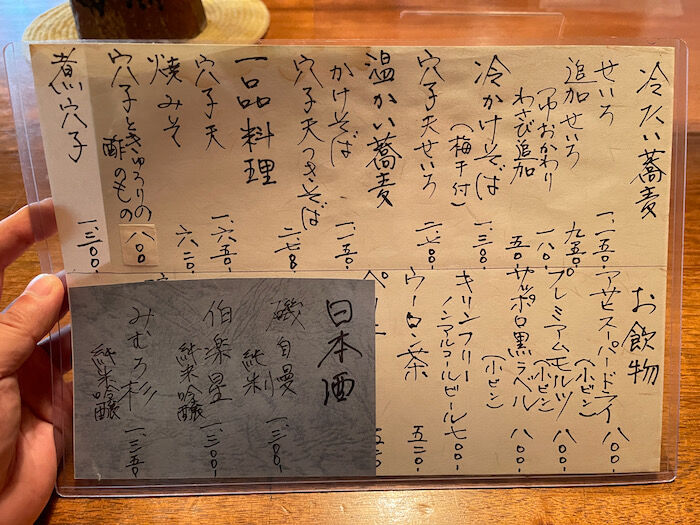 冷たい蕎麦
せいろ 一、一五〇
追加せいろ 九五〇
つゆおかわり 一八〇
わさび追加 五〇
冷かけそば
(梅干付) 一、三〇〇
穴子天せいろ 二、七〇〇
温かい蕎麦
かけそば 一、二五〇
穴子天つきそば 二、七〇〇
一品料理
穴子天 一、六五〇
焼みそ 六二〇
穴子ときゅうりの
酢のもの 八〇〇
煮穴子 一、三〇〇-
お飲物
アサヒスーパードライ
(小ビン) 八〇〇-
プレミアムモルツ
(小ビン) 八〇〇-
サッポロ黒ラベル
(小ビン) 八〇〇-
キリンフリー
ノンアルコールビール 七〇〇-
ウーロン茶 五二〇
日本酒
磯自慢
純米 一、三〇〇-
伯楽星
純米吟醸 一、三〇〇-
みむろ杉
純米吟醸 一、三五〇-